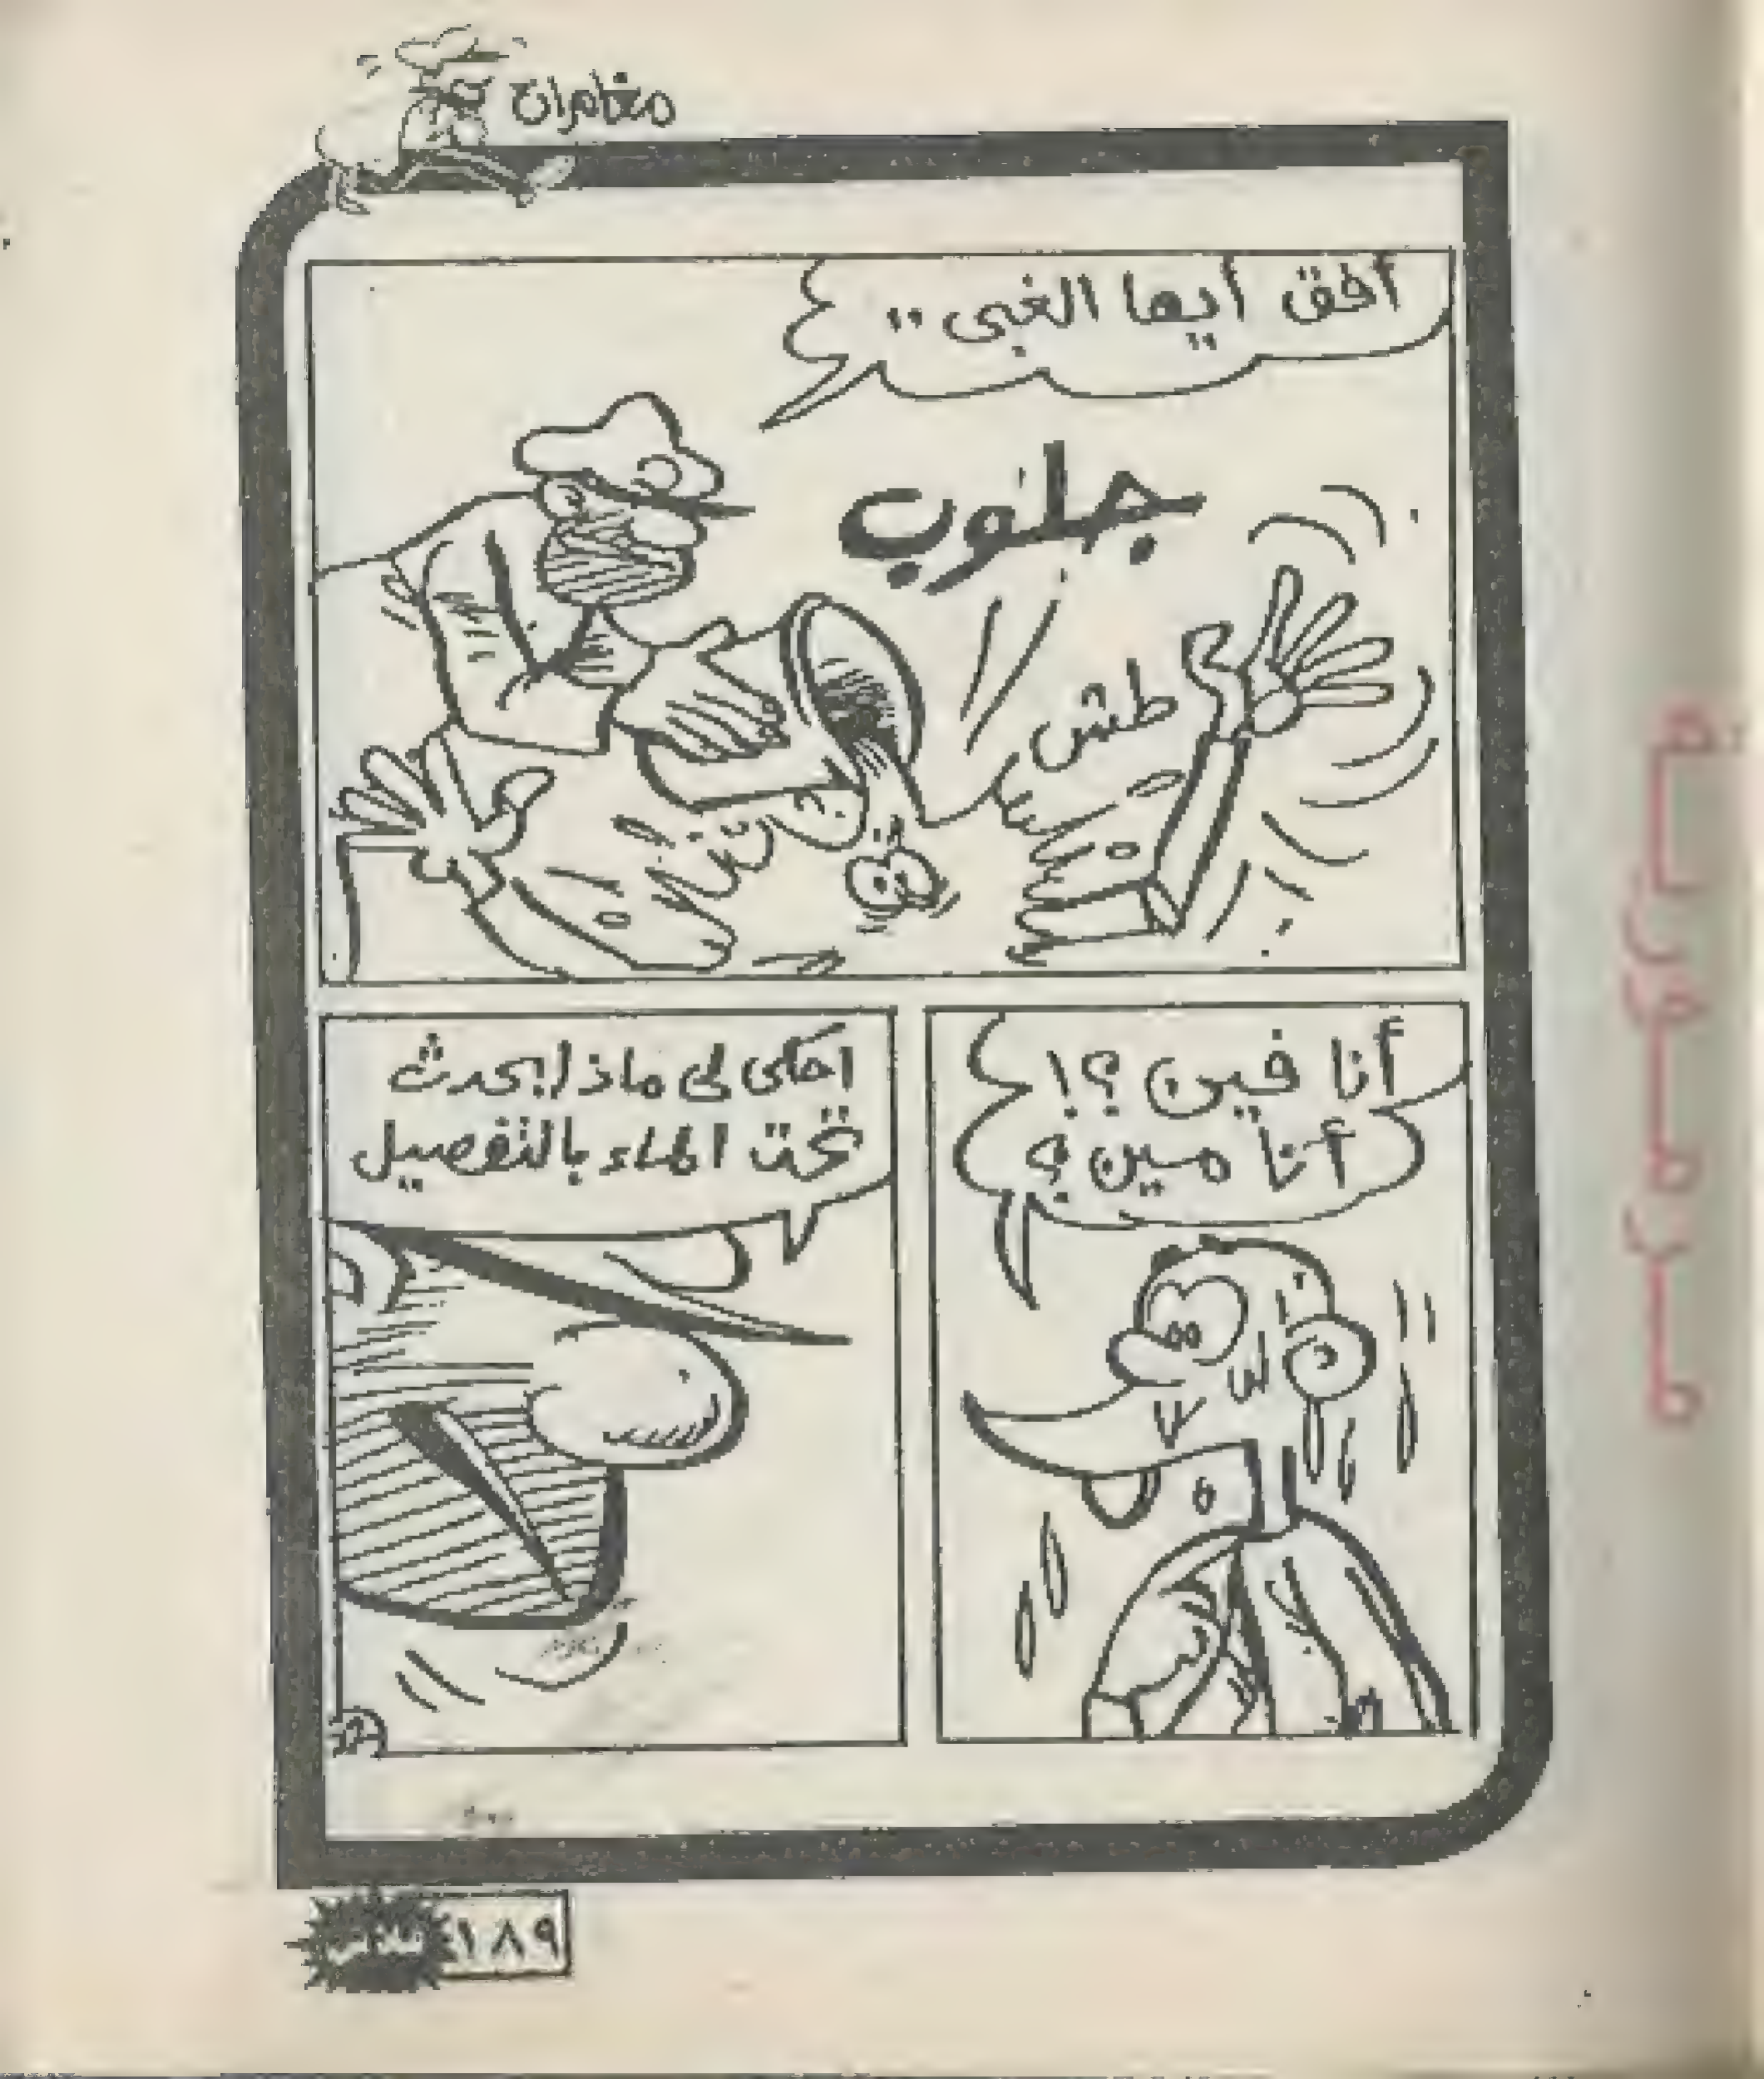 مغامرات
أفق أيها الغبى ..
جلوب
طش
أنا فين ؟!
أنا مين ؟
احكى لى ماذا يحدث
تحت الماء بالتفصيل
١٨٩
فلاش